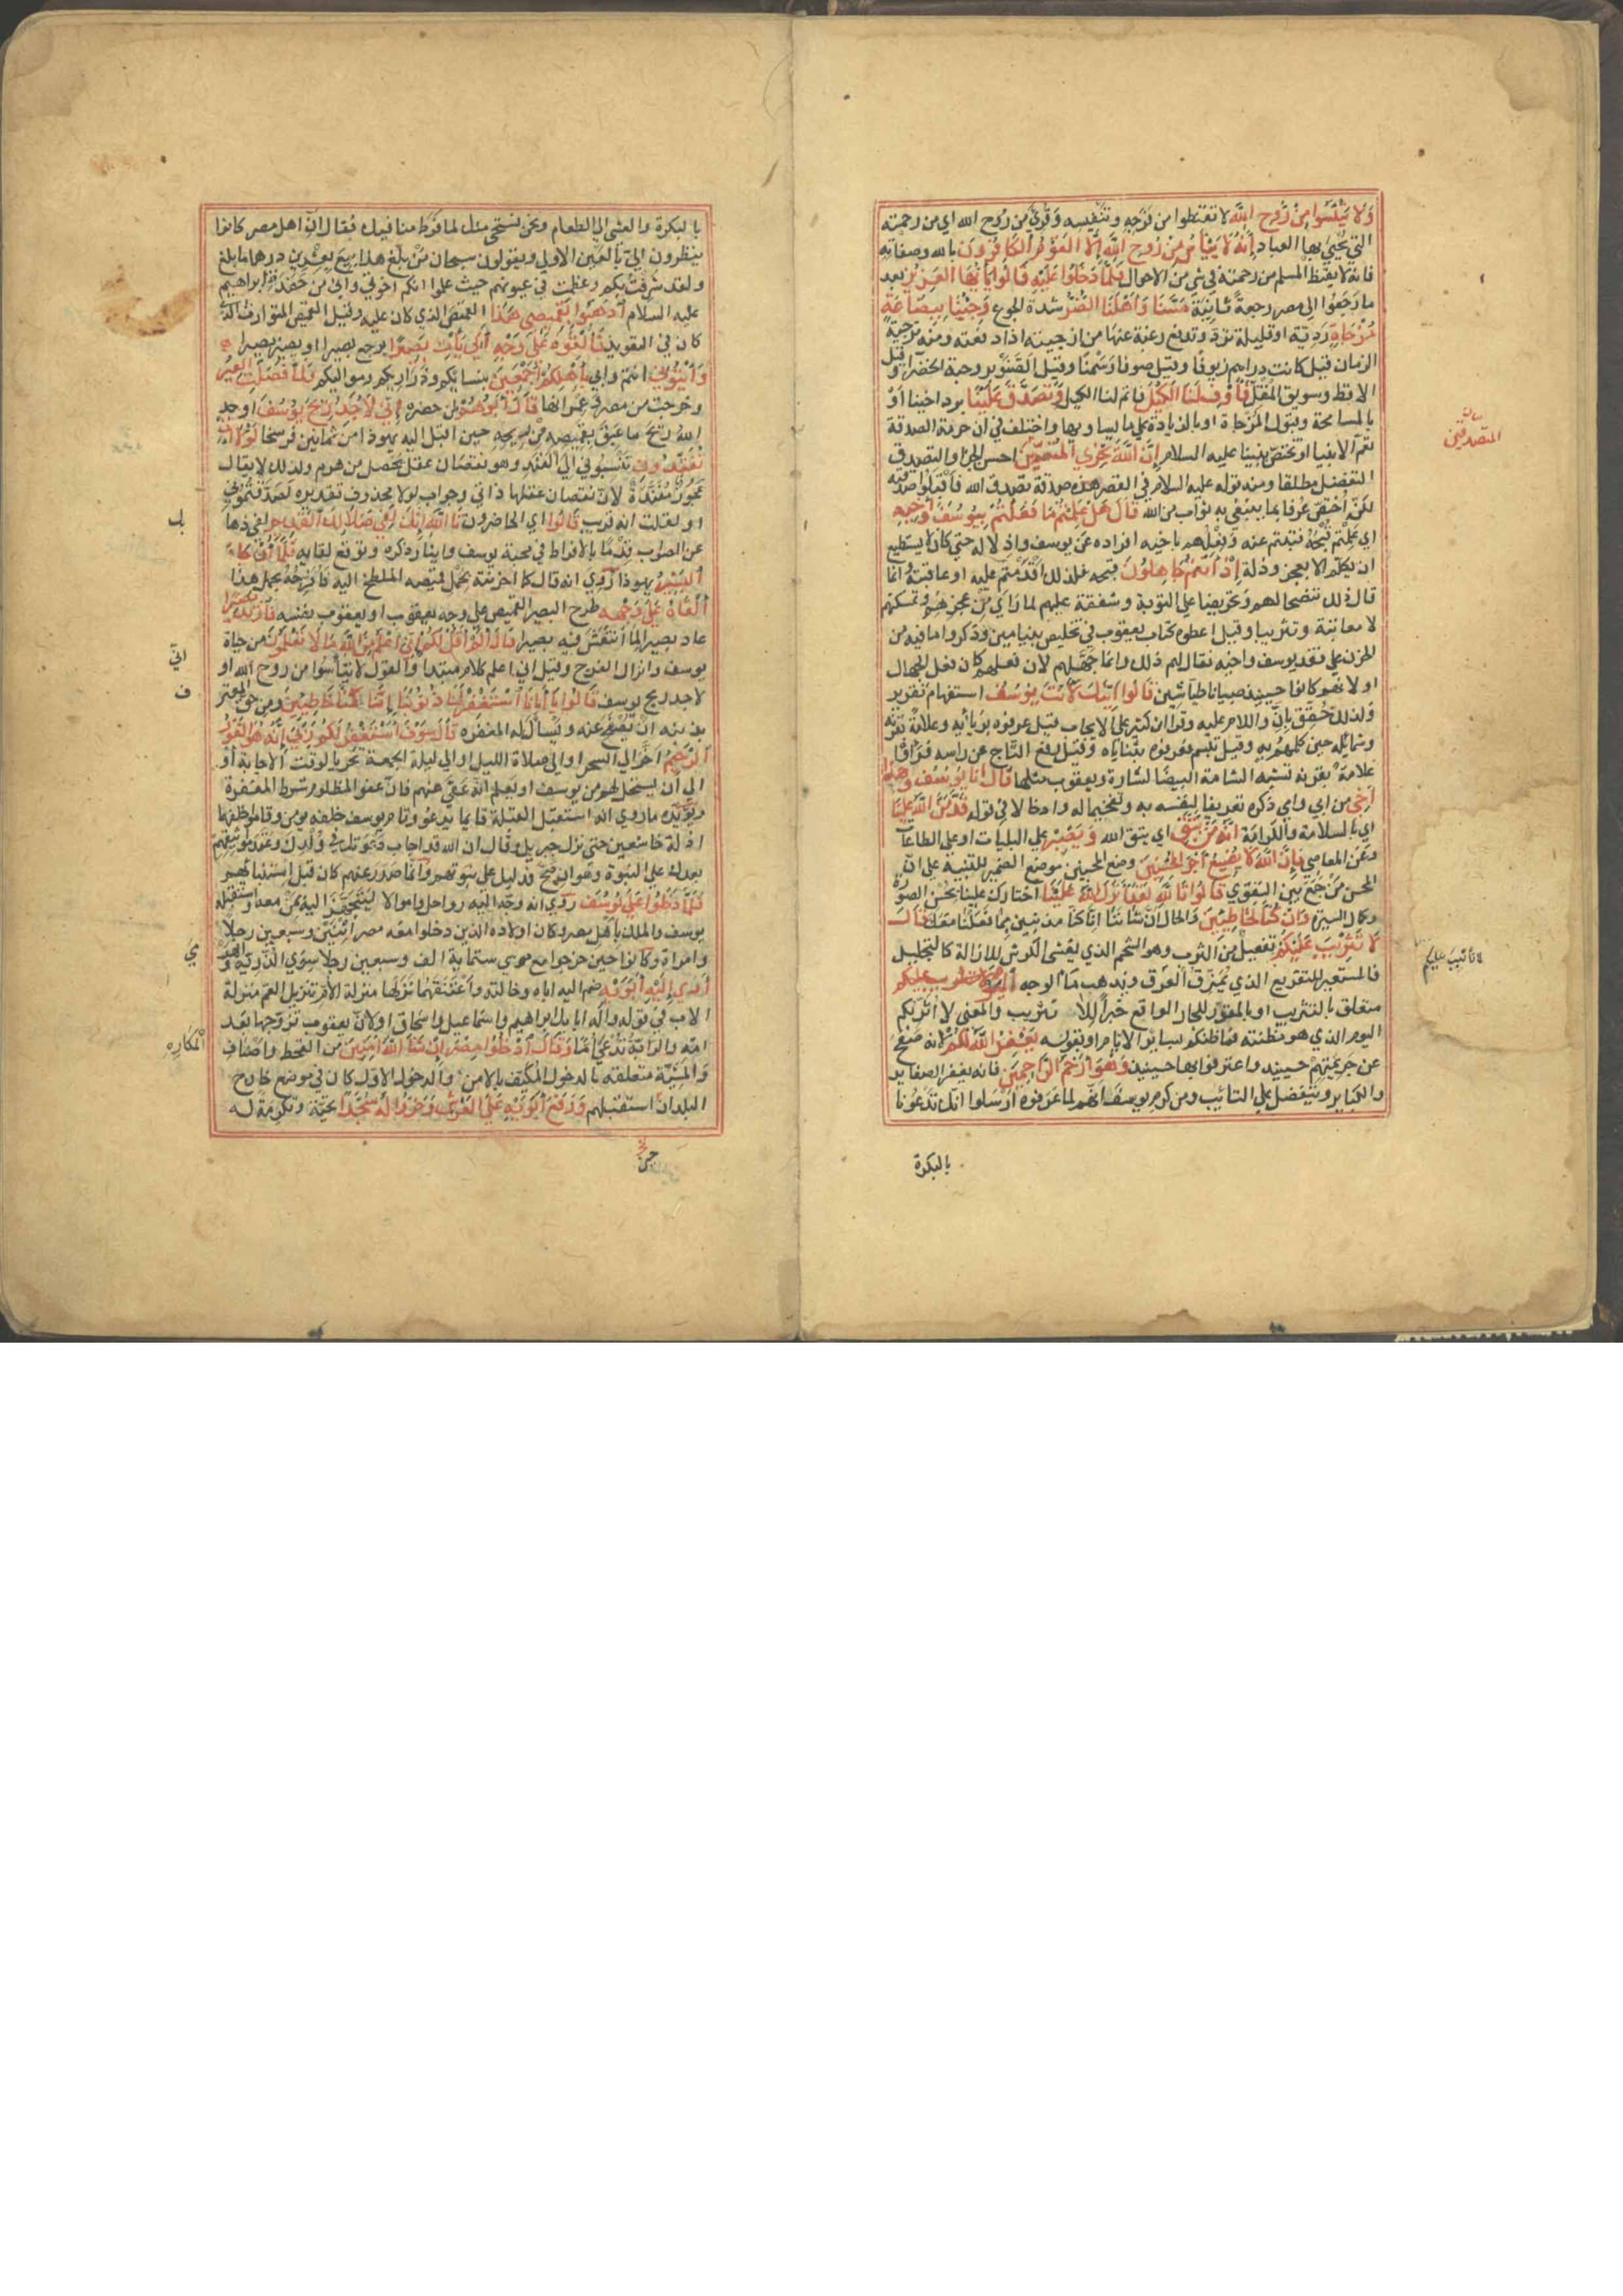 وَلَا تَيْئَسُوا مِنْ رَوْحِ اللَّهِ لا تقنطوا من فرجه وتنفيسه وقرئ من رُوح الله اي من رحمته
التي يُحْيي بها العباد إِنَّهُ لَا يَيْأَسُ مِنْ رَوْحِ اللَّهِ إِلَّا الْقَوْمُ الْكَافِرُونَ بالله وصفاته
فانه لا يقنط المسلم من رحمته في شي من الاحوال فَلَمَّا دَخَلُوا عَلَيْهِ قَالُوا يَا أَيُّهَا الْعَزِيزُ بعد
ما رجعوا الى مصر رجعة ثانية مَسَّنَا وَأَهْلَنَا الضُّرُّ شدة الجوع وَجِئْنَا بِبِضَاعَةٍ
مُزْجَاةٍ رديّة او قليلة تردّ وتدفع رغبة عنها من ازجيته اذا دفعته ومنه تزجية
الزمان قيل كانت دراهم زيوفا وقيل صوفا وسمنا وقيل الصنوبر وحبة الخضرا وقيل
الاقط وسويق المقل فَأَوْفِ لَنَا الْكَيْلَ فاتم لنا الكيل وَتَصَدَّقْ عَلَيْنَا برد اخينا او
بالمسامحة وقبول المزجاة او بالزيادة على ما يساويها واختلف في ان حرمة الصدقة
تعم الانبيا او تختص بنبينا عليه السلام إِنَّ اللَّهَ يَجْزِي الْمُتَصَدِّقِينَ احسن الجزا والتصدق
التفضل مطلقا ومنه قوله عليه السلام في القصر هذه صدقة تصدق الله فاقبلوا صدقته
لكن اختص عرفا بما يبتغى به ثواب من الله قَالَ هَلْ عَلِمْتُمْ مَا فَعَلْتُمْ بِيُوسُفَ وَأَخِيهِ
اي علمتم قبحه فتبتم عنه وفعلهم باخيه افراده عن يوسف واذلاله حتى كان لا يستطيع
ان يكلم الا بعجز وذلة إِذْ أَنْتُمْ جَاهِلُونَ قبحه فلذلك اقدمتم عليه او عاقبته وانما
قال ذلك تنصحا لهم وتحريضا على التوبة وشفقة عليهم لما راي من عجزهم وتمسكنهم
لا معاتبة وتثريبا وقيل اعطوه كتاب يعقوب في تخليص بنيامين وذكروا ما فيه من
الحزن على فقد يوسف واخيه فقال لهم ذلك وانما جهّلهم لان فعلهم كان فعل الجهال
او لانهم كانوا حينيذ صبيانا طياشين قَالُوا أَئِنَّكَ لَأَنْتَ يُوسُفُ استفهام تقرير
ولذلك حُقّق بإنّ واللام عليه وقرا ابن كثير على الايجاب قيل عرفوه برؤياه
وشمائله حين كلمهم به وقيل تبسم فعرفوه بثناياه وقيل رفع التاج عن راسه فراوا
علامة بقرنه تشبه الشامة البيضا لسارة ويعقوب مثلها قَالَ أَنَا يُوسُفُ وَهَذَا
أَخِي من ابي وامي ذكره تعريفا لنفسه به وتفخيما له وادخالا في قوله قَدْ مَنَّ اللَّهُ عَلَيْنَا
اي بالسلامة والكرامة إِنَّهُ مَنْ يَتَّقِ اي يتق الله وَيَصْبِرْ على البليات او على الطاعات
وعن المعاصي فَإِنَّ اللَّهَ لَا يُضِيعُ أَجْرَ الْمُحْسِنِينَ وضع المحسنين موضع الضمير للتنبيه على ان
المحسن من جمع بين التقوى قَالُوا تَاللَّهِ لَقَدْ آثَرَكَ اللَّهُ عَلَيْنَا اختارك علينا بحسن الصورة
وكمال السيرة وَإِنْ كُنَّا لَخَاطِئِينَ والحال ان شاننا انا كنا مذنبين بما فعلنا معك قَالَ
لَا تَثْرِيبَ عَلَيْكُمُ تفعيل من الثرب وهو الشحم الذي يغشى الكرش للازالة كالتجليل
فاستعير للتقريع الذي يمزق العرق ويذهب ما الوجه الْيَوْمَ
متعلق بالتثريب او بالمقدر للجار الواقع خبرا للا تثريب والمعنى لا اثربكم
اليوم الذي هو مظنته فما ظنكم بسائر الايام او بقوله يَغْفِرُ اللَّهُ لَكُمْ لانه صفح
عن جريمتهم حينيذ واعترفوا بها حينيذ وَهُوَ أَرْحَمُ الرَّاحِمِينَ فانه يغفر الصغاير
والكباير ويتفضل على التائب ومن كرم يوسف انهم لما عرفوه ارسلوا انك تدعونا
بالبكرة
المتصدقين
لا تأنيب عليكم
بالبكرة والعشي الى الطعام ونحن نستحي منك لما فرط منا فيك فقال ان اهل مصر كانوا
ينظرون اليّ بالعين الاولى ويقولون سبحان من بلغ هذا بيع بعشرين درهما ما بلغ
ولقد شرفت بكم وعظمت في عيونهم حيث علموا انكم اخوتي واني من حفدة ابراهيم
عليه السلام اذْهَبُوا بِقَمِيصِي هَذَا القميص الذي كان عليه وقيل القميص المتوارث الذي
كان في التعويذ فَأَلْقُوهُ عَلَى وَجْهِ أَبِي يَأْتِ بَصِيرًا يرجع بصيرا او يصير بصيرا
وَأْتُونِي انتم وابي بِأَهْلِكُمْ أَجْمَعِينَ بنسائكم وذراريكم ومواليكم وَلَمَّا فَصَلَتِ الْعِيرُ
وخرجت من مصر وعمرانها قَالَ أَبُوهُمْ لمن حضره إِنِّي لَأَجِدُ رِيحَ يُوسُفَ اوجده
الله ريح ما عبق بقميصه من ريحه حين اقبل اليه يهوذا من ثمانين فرسخا لَوْلَا أَنْ
تُفَنِّدُونِ تنسبوني الى الفند وهو نقصان عقل يحصل من هرم ولذلك لا يقال
عجوز مفندة لان نقصان عقلها ذاتي وجواب لولا محذوف تقديره لصدقتموني
او لقلت انه قريب قَالُوا اي الحاضرون تَاللَّهِ إِنَّكَ لَفِي ضَلَالِكَ الْقَدِيمِ لفي ذهابك
عن الصواب قدما بالافراط في محبة يوسف واكثار ذكره وتوقع لقايه فَلَمَّا أَنْ جَاءَ
الْبَشِيرُ يهوذا روي انه قال كما احزنته بحمل قميصه الملطخ اليه فافرحه بحمل هذا
أَلْقَاهُ عَلَى وَجْهِهِ طرح البشير القميص على وجه يعقوب او يعقوب بنفسه فَارْتَدَّ بَصِيرًا
عاد بصيرا لما انتعش فيه بصيرا قَالَ أَلَمْ أَقُلْ لَكُمْ إِنِّي أَعْلَمُ مِنَ اللَّهِ مَا لَا تَعْلَمُونَ من حياة
يوسف وانزال الفرج وقيل اني اعلم كلام مبتدا والقول لا تيأسوا من روح الله او
لاجد ريح يوسف قَالُوا يَا أَبَانَا اسْتَغْفِرْ لَنَا ذُنُوبَنَا إِنَّا كُنَّا خَاطِئِينَ ومن حق المعترف
بذنبه ان يصفح عنه ويسأل له المغفرة قَالَ سَوْفَ أَسْتَغْفِرُ لَكُمْ رَبِّي إِنَّهُ هُوَ الْغَفُورُ
الرَّحِيمُ اخره الى السحر او الى صلاة الليل او الى ليلة الجمعة تحريا لوقت الاجابة او
الى ان يستحل لهم من يوسف او يعلم انه عفى عنهم فان عفو المظلوم شرط المغفرة
ويؤيده ما روي انه استقبل القبلة قايما يدعو وقام يوسف خلفه يؤمن وقاموا خلفهما
اذلة خاشعين حتى نزل جبريل وقال ان الله قد اجاب دعوتك في ولدك وعقد مواثيقهم
بعدك على النبوة وهو ان صح فدليل على نبوتهم وانما صدر عنهم كان قبل استنبائهم
فَلَمَّا دَخَلُوا عَلَى يُوسُفَ روي انه وجّه اليه رواحل واموالا ليتجهز اليه بمن معه واستقبله
يوسف والملك باهل مصر وكان اولاده الذين دخلوا معه مصر اثنين وسبعين رجلا
وامراة وكانوا حين خرجوا مع موسى ستماية الف وسبعين رجلا سوى الذرية والهرمى
آوَى إِلَيْهِ أَبَوَيْهِ ضم اليه اباه وخالته واعتنقهما نزلها منزلة الام تنزيل العم منزلة
الاب في قوله واله ابايك ابراهيم واسماعيل واسحاق او لان يعقوب تزوجها بعد
امه والرابة تدعى اما وَقَالَ ادْخُلُوا مِصْرَ إِنْ شَاءَ اللَّهُ آمِنِينَ من القحط واصناف
والمشيّة متعلقة بالدخول المكيف بالامن والدخول الاول كان في موضع خارج
البلدان استقبلهم وَرَفَعَ أَبَوَيْهِ عَلَى الْعَرْشِ وَخَرُّوا لَهُ سُجَّدًا تحية وتكرمة له
بك
اني
ف
المكاره